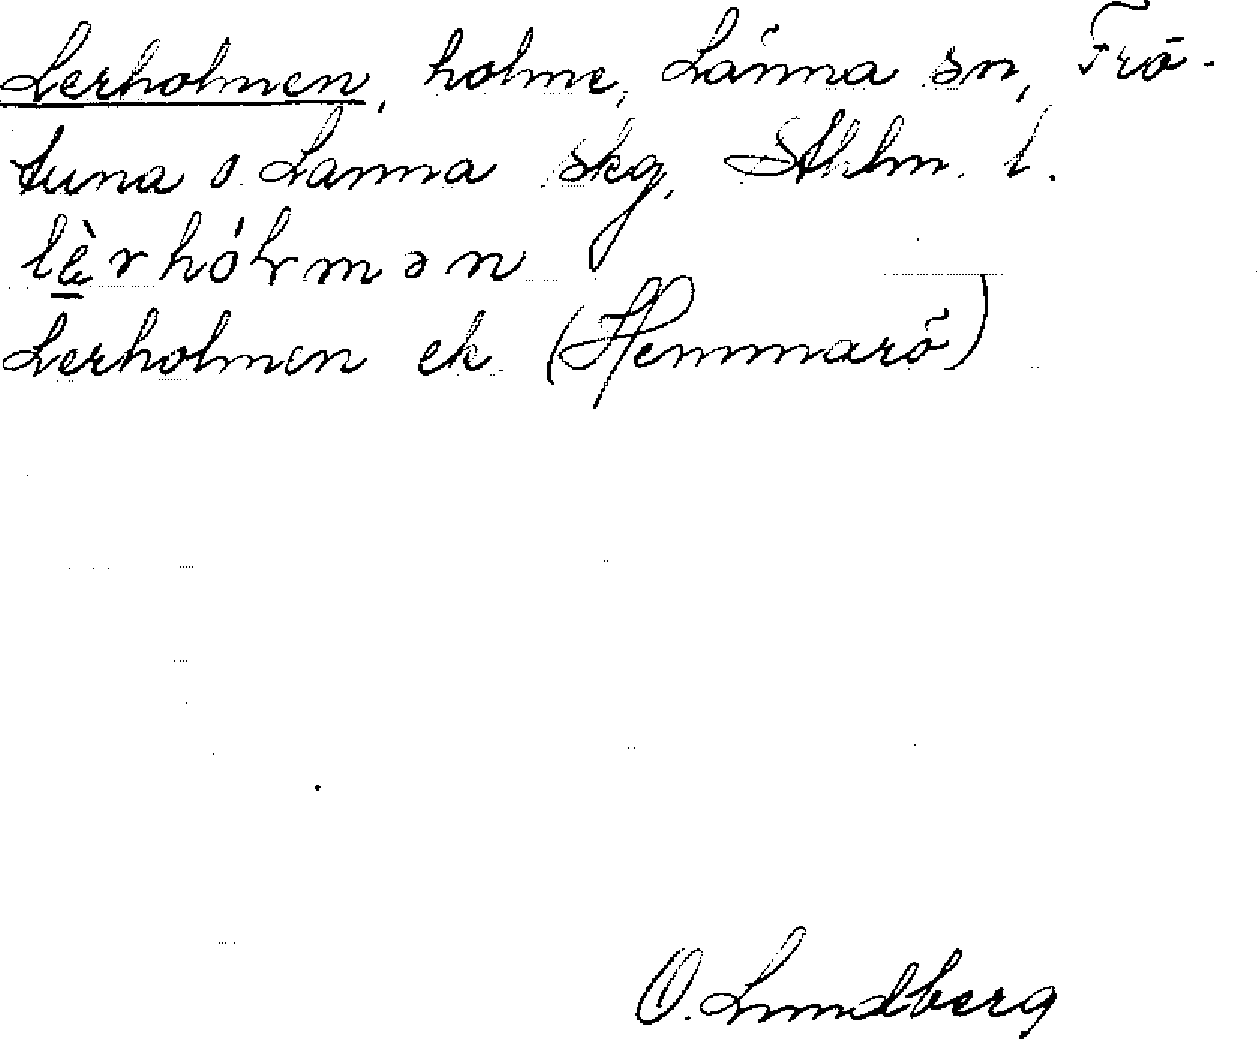 Lerholmen, holme, Länna sn, Frö-
tuna o. Länna skg, Sthlm. l.
lèrhólmən
Lerholmen ek (Hemmarö)
O. Lundberg